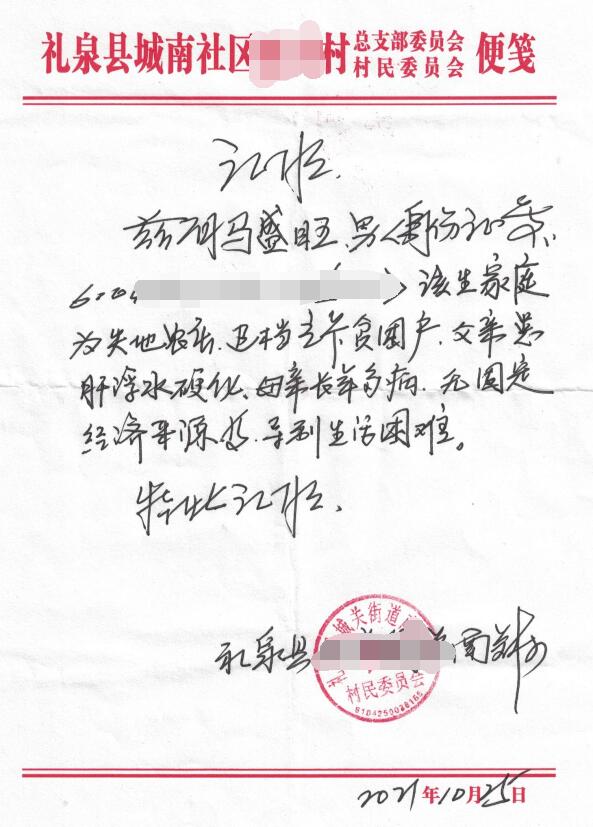 礼泉县城南社区 村 总支部委员会 村民委员会 便笺
证明
兹有 马盛旺、男(身份证号:
该生家庭
为失地农活、建档立卡贫困户、父亲患
肝浮水硬化、母亲长年多病、无固定
经济来源 导到生活困难。
特此证明、
礼泉县
城关街道
村民委员会
2021年10月25日